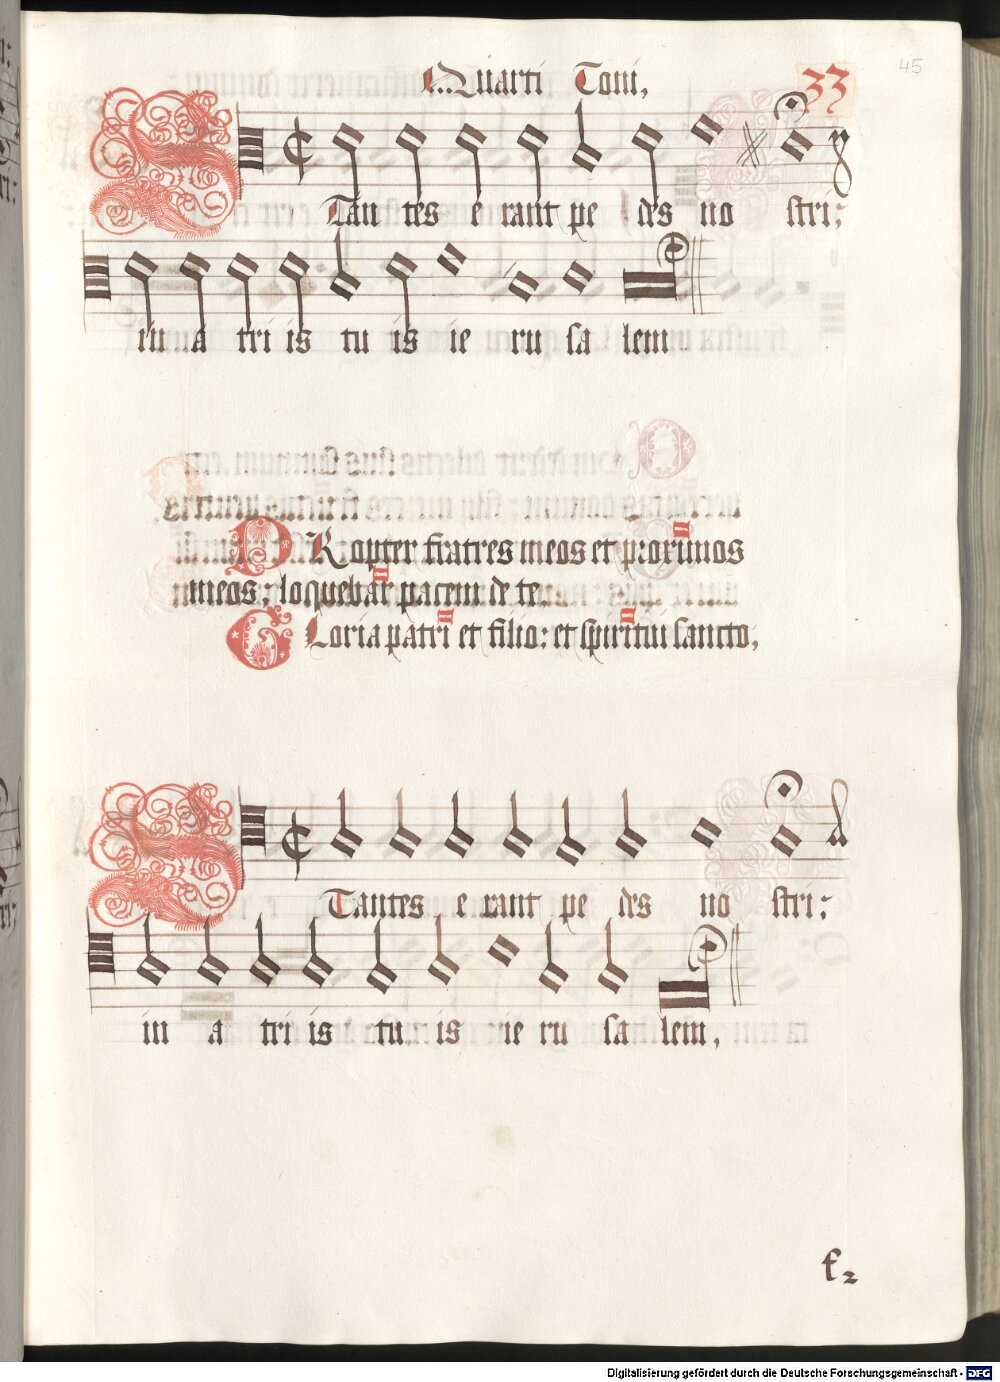 45
Quarti Toni,
33
Stan tes e rant pe des no stri;
in a tri is tu is ie ru sa lem
PRopter fratres meos et proximos
meos; loquebar pacem de te
GLoria patri et filio: et spiritui sancto,
STantes e rant pe des no stri;
in a tri is tu is ie ru sa lem,
f2
Digitalisierung gefördert durch die Deutsche Forschungsgemeinschaft - DFG